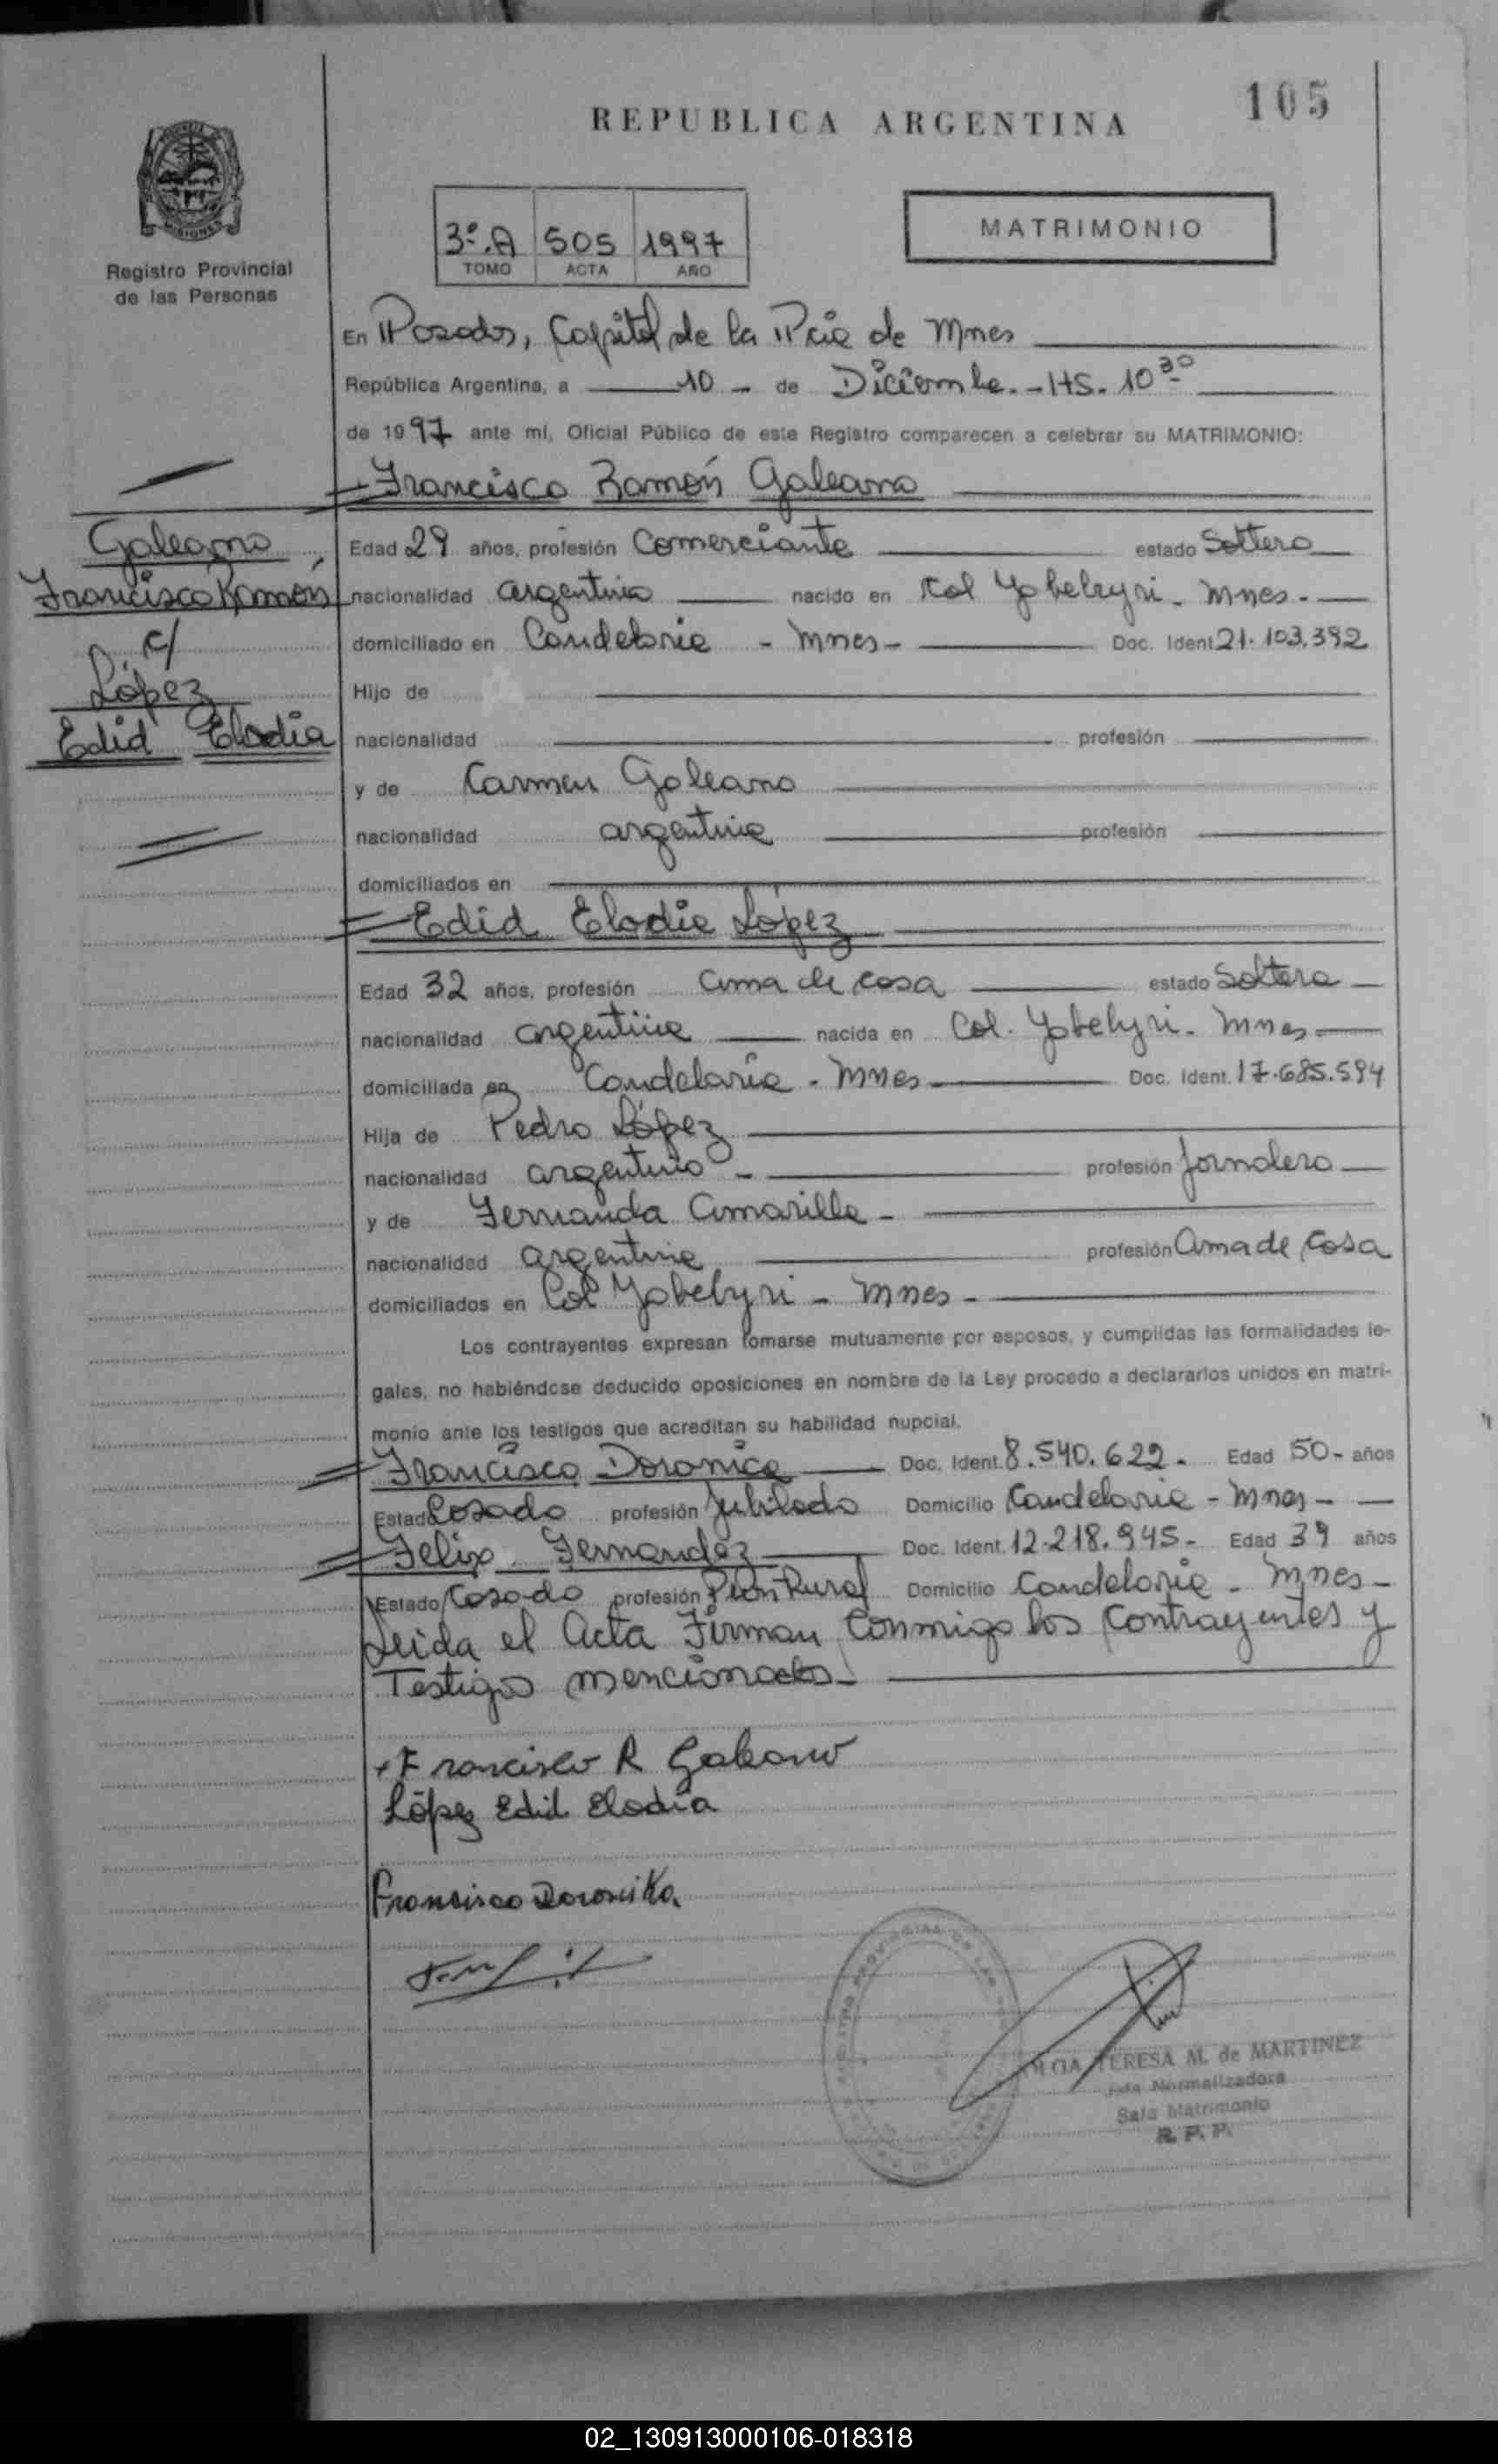 105
REPUBLICA ARGENTINA
MISIONES
Registro Provincial
de las Personas
3º.A 505 1997
TOMO ACTA AÑO
MATRIMONIO
En Posadas, Capital de la Pcia de Mnes
República Argentina, a 10 - de Diciembre. - HS. 10 30
de 1997 ante mí, Oficial Público de este Registro comparecen a celebrar su MATRIMONIO:
Francisco Ramón Galeano
Galeano
Francisco Ramón
c/
López
Edid Elodia
Edad 29 años, profesión Comerciante estado Soltero
nacionalidad argentina nacido en Col Yabebyri - Mnes.
domiciliado en Candelaria - Mnes - Doc. Ident 21.103.392
Hijo de
nacionalidad profesión
y de Carmen Galeano
nacionalidad argentina profesión
domiciliados en
Edid Elodia López
Edad 32 años, profesión ama de casa estado Soltera
nacionalidad argentina nacida en Col. Yabebyri - Mnes
domiciliada en Candelaria - Mnes Doc. Ident. 17.685.594
Hija de Pedro López
nacionalidad argentino - profesión Jornalero
y de Fernanda Amarilla -
nacionalidad argentina profesión Ama de Casa
domiciliados en Col Yabebyri - Mnes -
Los contrayentes expresan tomarse mutuamente por esposos, y cumplidas las formalidades le-
gales, no habiéndose deducido oposiciones en nombre de la Ley procedo a declararlos unidos en matri-
monio ante los testigos que acreditan su habilidad nupcial.
Francisco Doronica Doc. Ident. 8.540.622 - Edad 50 - años
Estado Casado profesión Jubilado Domicilio Candelaria - Mnes -
Felix Fernandez Doc. Ident. 12.218.945 - Edad 39 años
Estado Casado profesión Peón Rural Domicilio Candelaria - Mnes -
Leida el Acta Firman Conmigo los Contrayentes y
Testigos mencionados -
Francisco R Galeano
López Edid Elodia
Francisco Doronika
TERESA M. de MARTINEZ
Jefa Normalizadora
Sala Matrimonio
R. P. P.
02_130913000106-018318